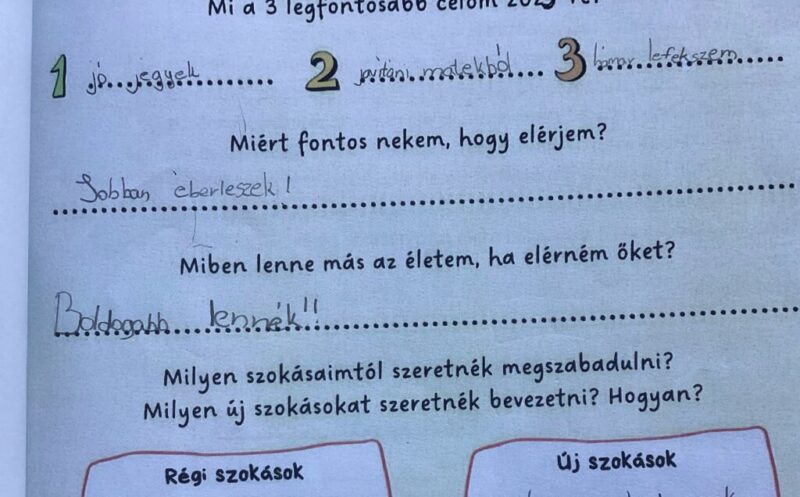 Mi a 3 legfontosabb célom
1 jó jegyek 2 javítani matekból 3 hamar lefekszem
Miért fontos nekem, hogy elérjem?
Jobban éberleszek!
Miben lenne más az életem, ha elérném őket?
Boldogabb lennék!!
Milyen szokásaimtól szeretnék megszabadulni?
Milyen új szokásokat szeretnék bevezetni? Hogyan?
Régi szokások Új szokások